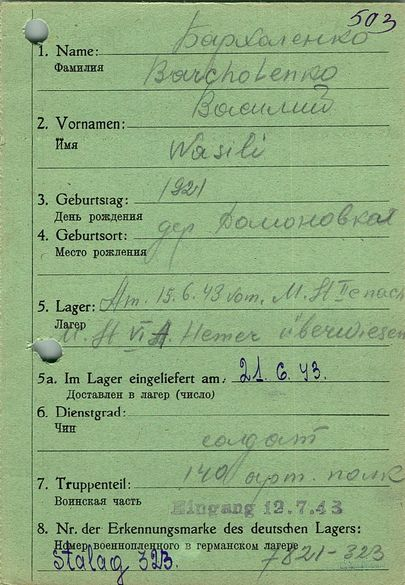 503
Бархаленко
1. Name:
Фамилия
Barcholenko
Василий
2. Vornamen:
Имя
Wasili
3. Geburtstag: 1921
День рождения
4. Geburtsort: дер Домоновкая
Место рождения
5. Lager: Am. 15.6.43 vom. M. St II e nach
Лагер
M. St VI A Hemer überwiesen
5a. Im Lager eingeliefert am 21. 6. 43.
Доставлен в лагер (число)
6. Dienstgrad:
Чин
солдат
7. Truppenteil: 140 арт. полк
Воинская часть
Eingang 12.7.43
8. Nr. der Erkennungsmarke des deutschen Lagers:
Номер военнопленного в германском лагере
Stalag 323. 7821-323